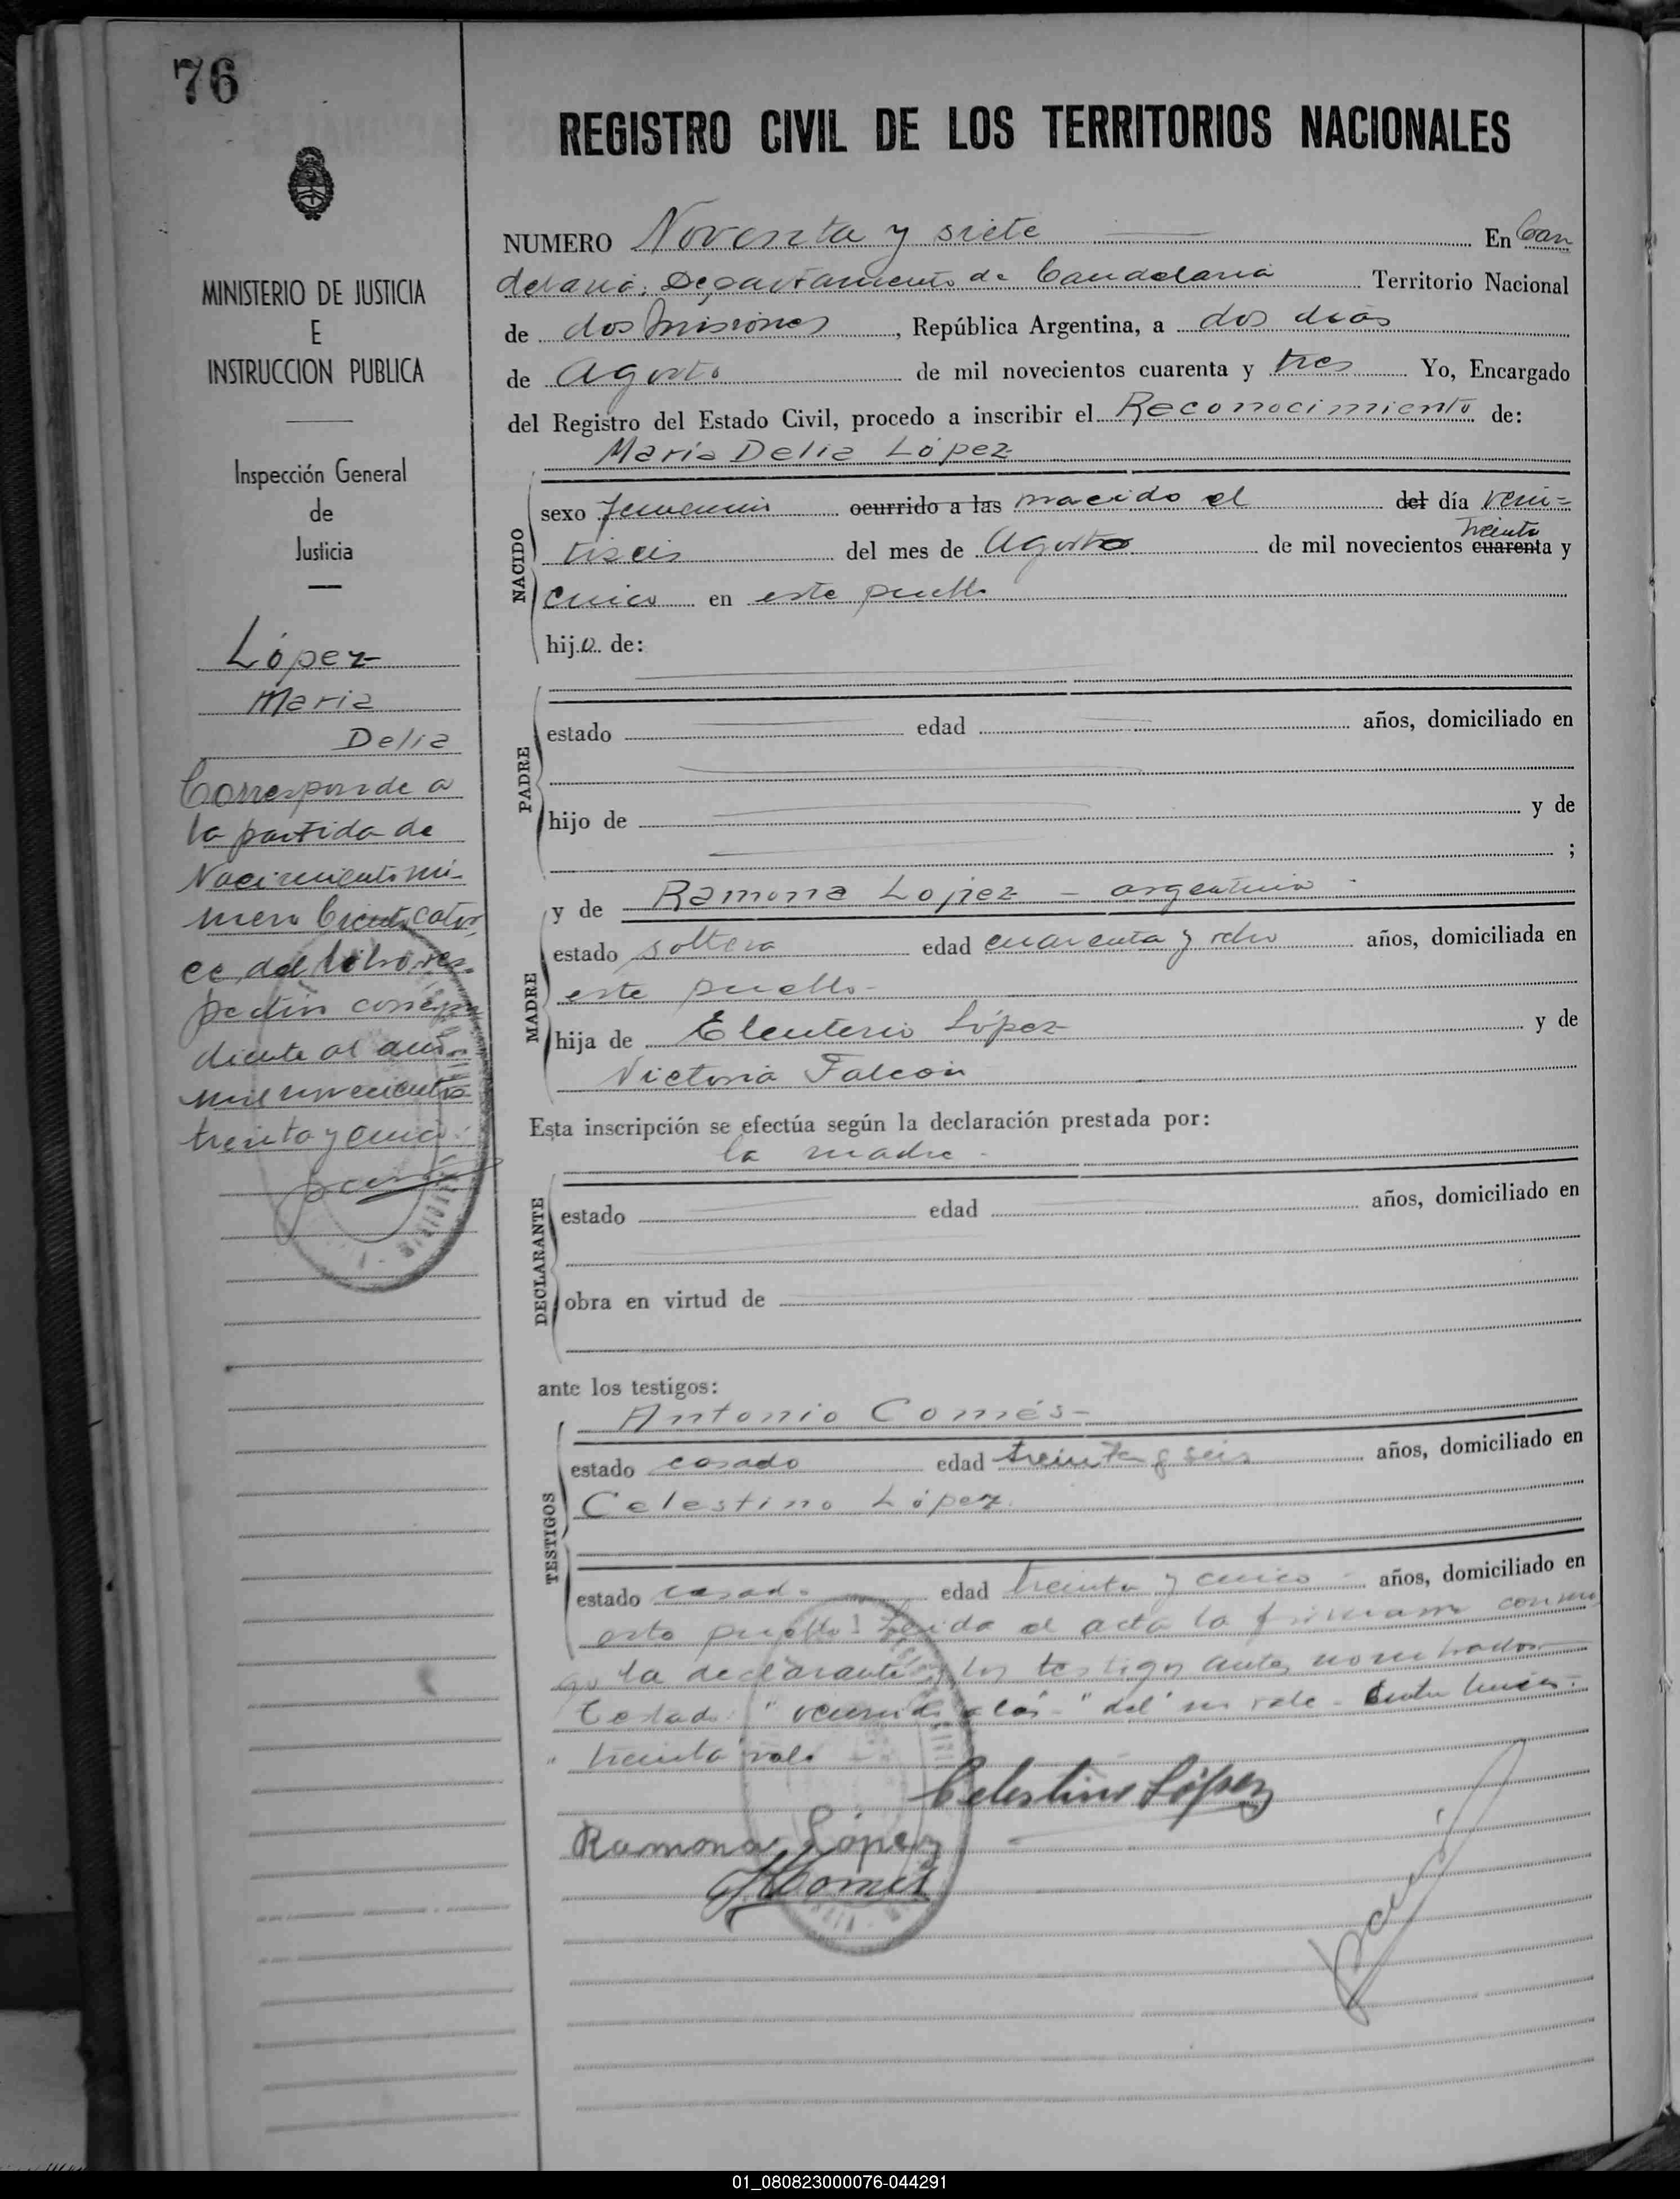 76
REGISTRO CIVIL DE LOS TERRITORIOS NACIONALES
MINISTERIO DE JUSTICIA
E
INSTRUCCION PUBLICA
Inspección General
de
Justicia
López
Maria
Delia
Corresponde a
la partida de
Nacimiento nú-
mero Ciento cator
ce del libro res-
pectivo correspon
diente al año
mil novecientos
treinta y cinco.
NUMERO Noventa y siete En Can
delaria, Departamento de Candelaria Territorio Nacional
de dos Misiones, República Argentina, a dos dias
de Agosto de mil novecientos cuarenta y tres Yo, Encargado
del Registro del Estado Civil, procedo a inscribir el Reconocimiento de:
María Delia López
NACIDO
sexo femenino ocurrido a las nacido el del día vein=
Treinta
tiseis del mes de Agosto de mil novecientos cuarenta y
cinco en este pueblo
hija de:
PADRE
estado edad años, domiciliado en
hijo de y de
;
MADRE
y de Ramona Lopez - argentina
estado soltera edad cuarenta y ocho años, domiciliada en
este pueblo-
hija de Eleuterio López y de
Victoria Falcón
Esta inscripción se efectúa según la declaración prestada por:
la madre-
DECLARANTE
estado edad años, domiciliado en
obra en virtud de
ante los testigos:
TESTIGOS
Antonio Comés-
estado casado edad treinta y seis años, domiciliado en
Celestino López
estado casado edad treinta y cinco años, domiciliado en
este pueblo Leida el acta la firmaron conmi
go la declarante y los testigos antes nombrados
Testado: "ocurrido a las" - "del" no vale - Entre lineas:
"treinta vale
Celestino López
Ramona López
Comés
01_080823000076-044291